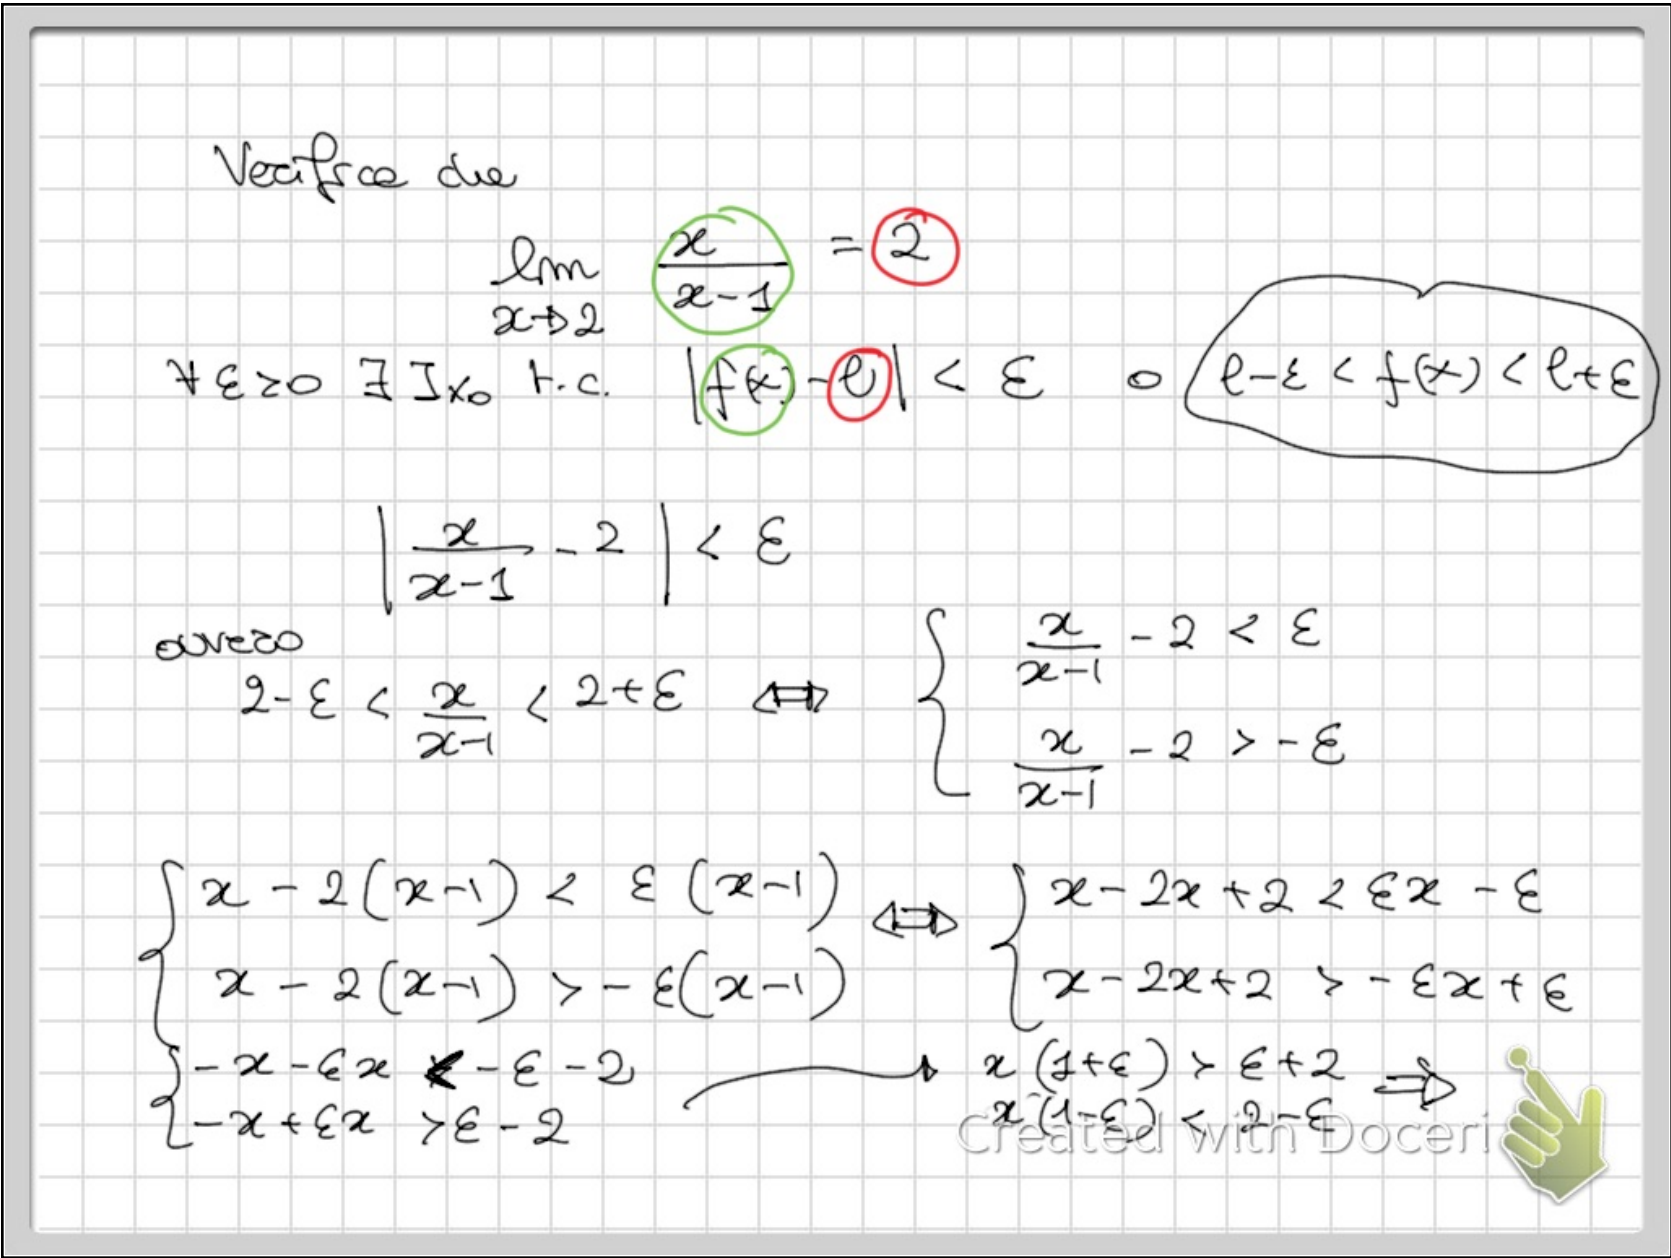 Verifica che
lim x→2 x/(x-1) = 2
∀ε>0 ∃ I_{x_0} t.c. |f(x)-l| < ε o l-ε < f(x) < l+ε
|x/(x-1) - 2| < ε
ovvero
2-ε < x/(x-1) < 2+ε ⇔ { x/(x-1) - 2 < ε
x/(x-1) - 2 > -ε
{ x - 2(x-1) < ε(x-1) ⇔ { x - 2x + 2 < εx - ε
x - 2(x-1) > -ε(x-1) x - 2x + 2 > -εx + ε
{ -x - εx < -ε - 2 → x(1+ε) > ε+2 ⇒
-x + εx > ε - 2 x(1-ε) < 2-ε
Created with Doceri